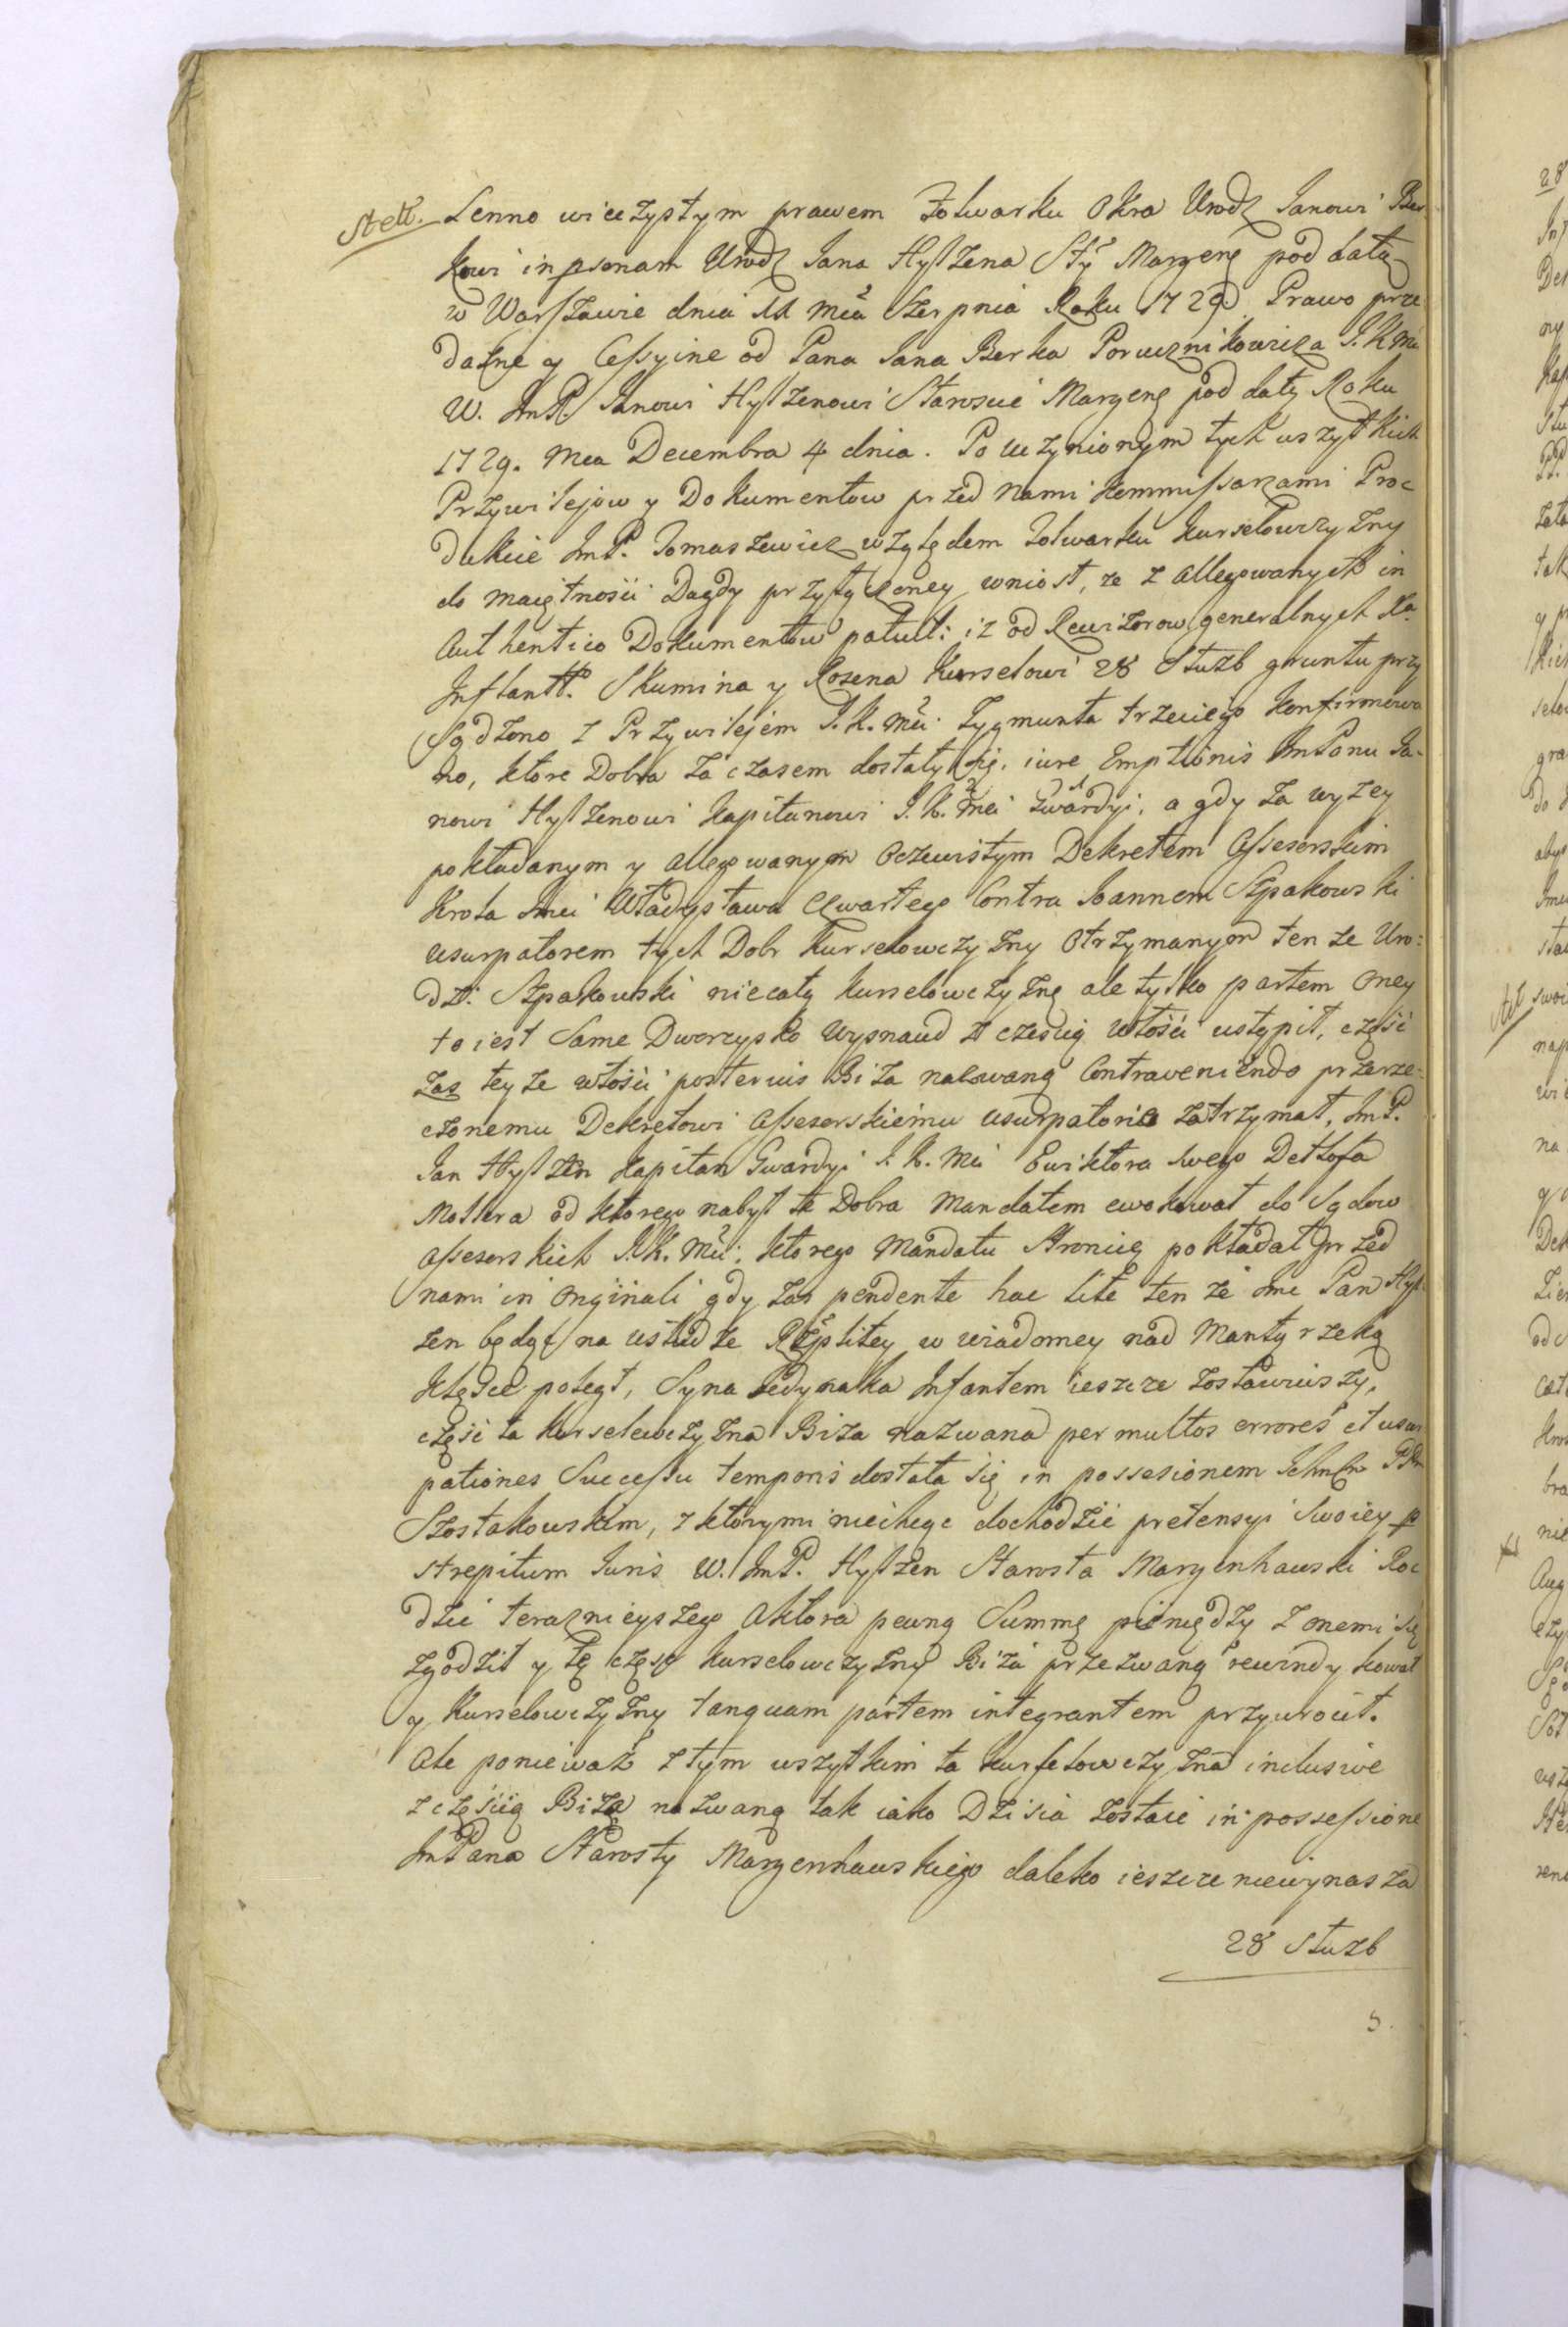 Lenno wieczystym prawem Folwarku Okra Urodz Janowi Ber
kowi in psonam Urodz Jana Hylzena Sty Maryeng pod datą
w Warszawie dnia 11 mca Sierpnia Roku 1729 Prawo prze
dażne y Cessyine od Pana Jana Berka Porucznikowicza J. K. Mci
W. JmP. Janowi Hylzenowi Staroscie Maryeng pod datą Roku
1729. Mca Decembra 4 dnia. Po uczynionym tych wszytkich
Przywilejow y Dokumentow przed nami Kommissarzami Pro
dukcie JmP. Tomaszewicz względem Folwarku Kurselowczyzny
do maiętności Dagdy przyłączoney wniosł, ze z allegowanych in
Authentico Dokumentow patuit: iz od Rewizorow generalnych Xa
Inflantt. Skumina y Rosena Kurselowi 28 Służb gruntu przy
Sądzono z Przywilejem J. K. Mci Zygmunta trzeciego konfirmowa
no, ktore Dobra za czasem dostały się iure Emptionis JmPanu Ja-
nowi Hylzenowi Kapitanowi J. K. Mci Gwardyi, a gdy za wyzey
pokładanym y allegowanym Oczewistym Dekretem Assesorskim
Krola Jmci Władysława Czwartego Contra Joannem Szpakowski
usurpatorem tych Dobr Kurselowczyzny Otrzymanym ten ze Uro:
dz: Szpakowski niecałą Kurselowczyznę ale tylko partem oney
to iest Same Dworzysko Wysnaud z częscią włości ustąpił, częśc
zaś teyze włości posterius Biza nazwaną Contraveniendo przerze-
czonemu Dekretowi Assesorskiemu usurpatorie zatrzymał, JmP.
Jan Hylzen Kapitan Gwardyi J. K. Mci Ewiktora swego Detlofa
Mollera od ktorego nabył te Dobra Mandatem ewokował do Sądow
Assesorskich J. K. Mci: ktorego Mandatu Stronicę pokładał przed
nami in Originali gdy zas pendente hac lite ten ze Jmc Pan Hyl
zen będąc na usłudze Rzplitey w wiadomey nad Mątwy rzeką
klęsce poległ, Syna Jedynaka Infantem ieszcze zostawiwszy,
częsc ta Kurselowczyzna Biza nazwana per multos errores et usur
pationes Successu temporis dostała się in possesionem Ichmcn PPn
Szostakowskim, z ktorymi niechcąc dochodzić pretensyi Swoiey p
strepitum Iuris W. JmP. Hylzen Starosta Maryenhauski Ro
dzic terazneyszego Aktora pewną Summę pieniędzy z onemi się
zgodził y tę częsc Kurselowczyzny Biza przezwaną rewindykował
y Kurselowczyzny tanquam partem integrantem przywrocił.
Ale poniewaz z tym wszytkim ta Kurselowczyzna inclusive
z częścią Bizą nazwaną tak iako Dzisia zostaie in possessione
JmPana Starosty Maryenhauskiego daleko ieszcze niewynasza
28 Służb